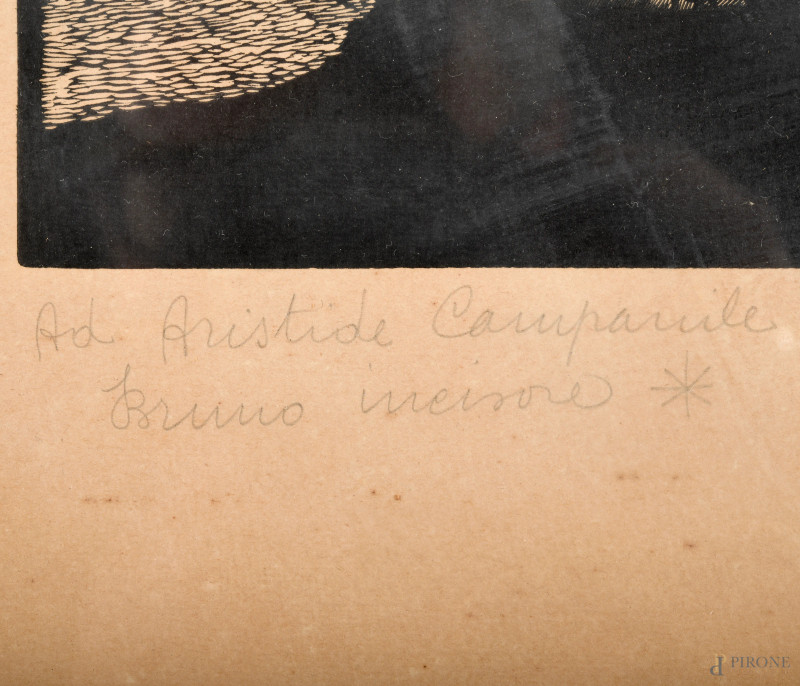 Ad Aristide Campanile
Bruno incisore *
PIRONE